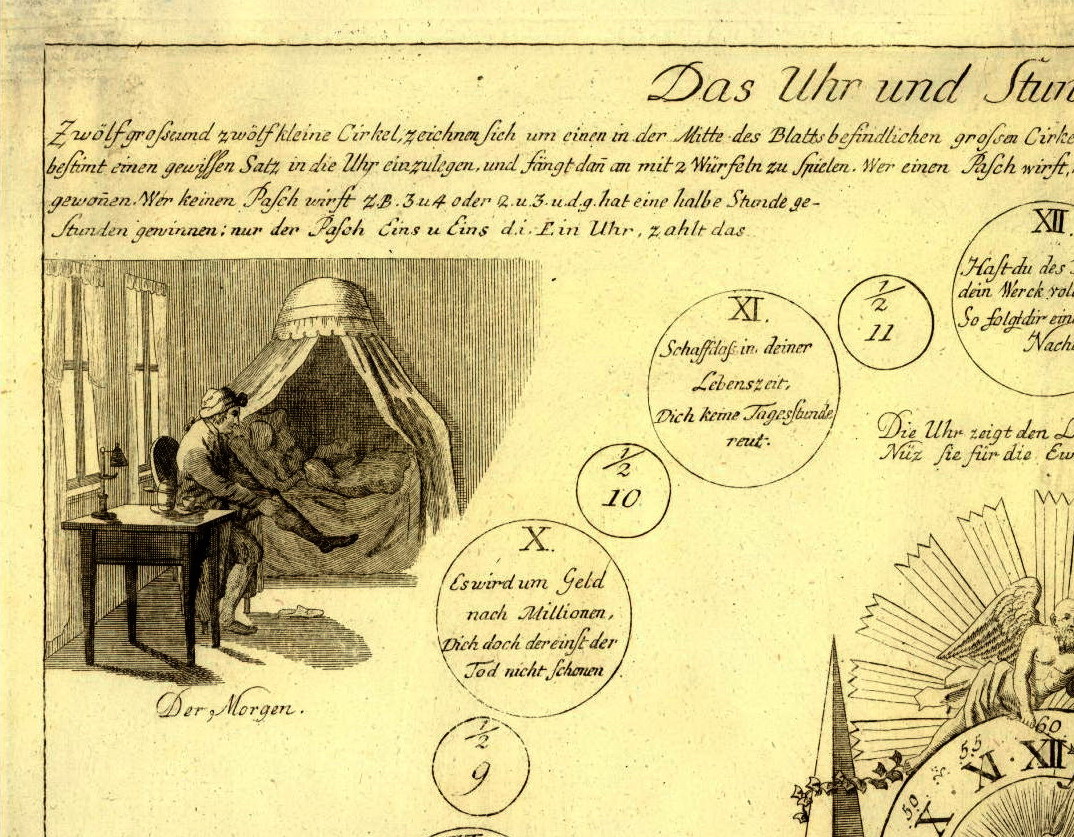 Das Uhr und Stun
Zwölf grosse und zwölf kleine Cirkel, zeichnen sich um einen in der Mitte des Blatts befindlichen grossen Cirke
bestimt einen gewissen Satz in die Uhr einzulegen, und fängt dañ an mit 2 Würfeln zu spielen. Wer einen Pasch wirft,
gewoñen. Wer keinen Pasch wirft z.B. 3 u 4 oder 2. u. 3. u. d. g. hat eine halbe Stunde ge-
Stunden gewinnen; nur der Pasch Eins u Eins d. i. Ein Uhr, zahlt das
XII.
Hast du des
dein Werck vol
So folgt dir ein
Nach
1/2
11
XI.
Schaff das in deiner
Lebenszeit,
Dich keine Tagesstunde
reut.
Die Uhr zeigt den L
Nüz sie für die Ew
1/2
10
X.
Es wird um Geld
nach Millionen,
Dich doch dereinst der
Tod nicht schonen.
Der Morgen.
1/2
9
60
55
50
XII
XI
X